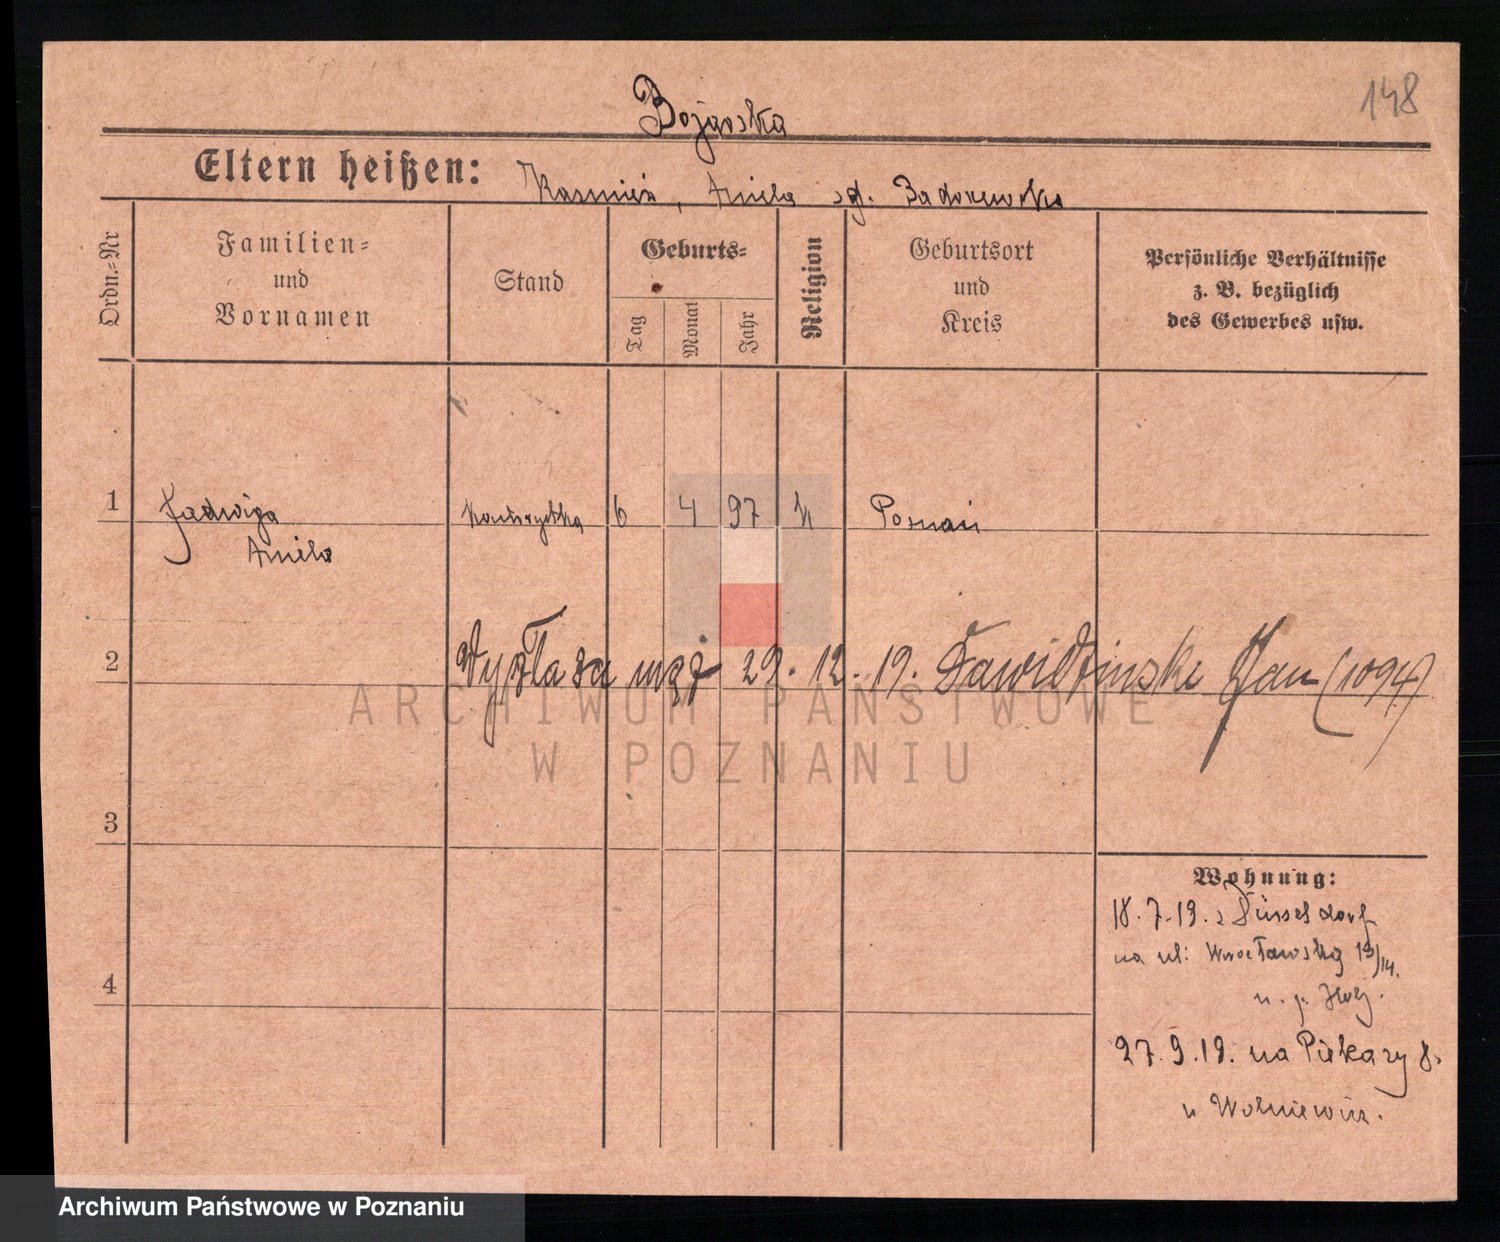 148
Bojarska
Eltern heißen: Kazmierz, Aniela zd. Badorewska
Ordn.=Nr
Familien= und Vornamen
Stand
Geburts=
Tag
Monat
Jahr
Religion
Geburtsort und Kreis
Persönliche Verhältnisse
z. B. bezüglich
des Gewerbes usw.
1 Jadwiga 6 4 97 k Poznań
Aniela
2 Wyszła za mąż 29. 12. 19. Jan (1894)
3
4
Wohnung:
18.7.19. z Düsseldorf
na ul: Wrocławską 13/14.
u. p.
27.9.19. na Piekary 8.
u Wolniewicz.
ARCHIWUM PAŃSTWOWE
W POZNANIU
Archiwum Państwowe w Poznaniu